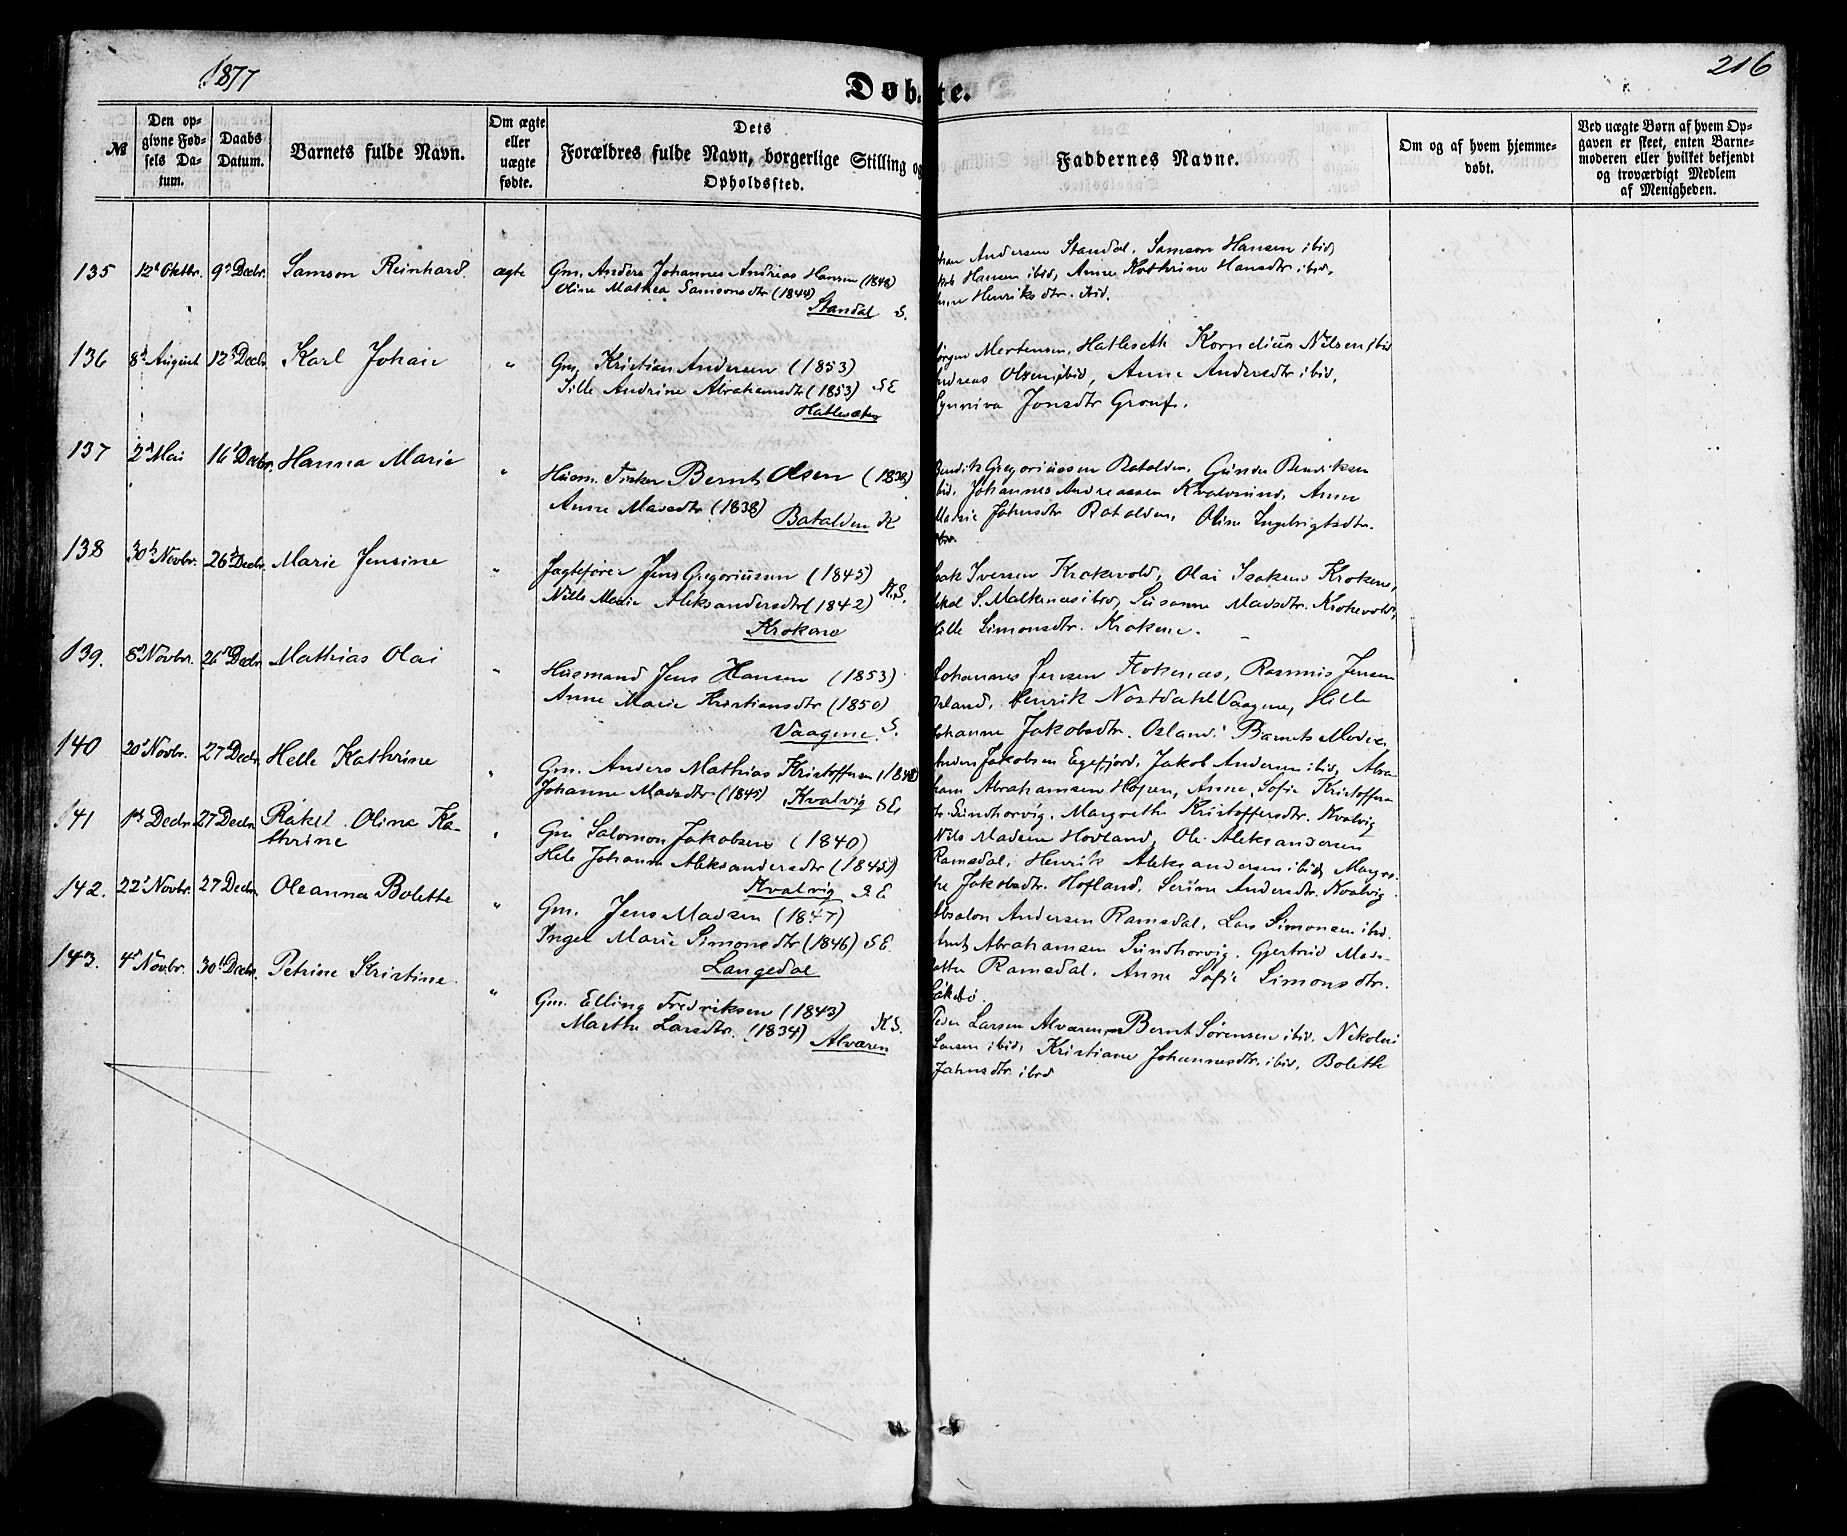 1877
Døbte.
216
№
Den opgivne Fødsels Datum.
Daabs Datum.
Barnets fulde Navn.
Om ægte eller uægte fødte.
Dets Forældres fulde Navn, borgerlige Stilling og Opholdssted.
Faddernes Navne.
Om og af hvem hjemmedøbt.
Ved uægte Børn af hvem Opgaven er skeet, enten Barnemoderen eller hvilket bekjendt og troværdigt Medlem af Menigheden.
135 12t Oktbr. 9de Decbr. Samson Reinhard. ægte
Gm. Anders Johannes Andreas Hansen (1848)
Oline Mathea Samsonsdtr (1844)
Standal S.
Andersen Standal. Samson Hansen ibid,
Hansen ibid, Anne Kathrine Hansdtr ibid,
Henriksdtr. ibid.
136 8de August 12te Decbr. Karl Johan "
Gm. Kristian Andersen (1853)
Sille Andrine Abrahamsdtr (1853) SE
Hatlesæter
Jørgen Mortensen, Hatleseth Kornelius Nilsen ibid
Andreas Olsen ibid, Anne Andersdtr ibid,
Synniva Jonsdtr Grouf.
137 2d Mai 16de Decbr. Hanna Marie "
Husm. Fisker Bernt Olsen (1838)
Anne Madsdtr (1838) Batalden K
Bendik Gregoriussen Batalden, Gunder Bendiksen
ibid, Johannes Andreassen Kvalvsund, Anne
Marie Johnsdtr Batalden, Oline Ingebrigtsdtr.
ibid.
138 30te Novbr. 26de Decbr. Marie Jensine "
Jagtefører Jens Gregoriussen (1845)
Nille Marie Aleksandersdtr (1842) K.S.
Krokane
Isak Iversen Krokevold, Olai Isaksen Krokene,
S. Malkenæs ibid, Susanne Madsdtr. Krokevold,
Hille Simonsdtr. Krokene.
139. 8de Novbr. 26de Decbr. Mathias Olai "
Husmand Jens Hansen (1853)
Anne Marie Kristiansdtr (1850)
Vaagene. S.
Johannes Jensen Flokenæs, Rasmus Jensen
Osland, Henrik Nostdahl Vaagene, Hille
Johanne Jakobsdtr. Osland, Barnets Moder.
140 20de Novbr. 27 Decbr. Helle Kathrine "
Gm. Anders Mathias Kristoffersen (1848)
Johanne Madsdtr (1845) Kvalvig SE
Anders Jakobsen Egefjord, Jakob Andersen ibid, Abra
ham Abrahamsen Hopen, Anne Sofie Kristoffers
dtr. Sundhorvig, Margrethe Kristoffersdtr. Kvalvig
141 1ste Decbr. 27 Decbr. Rakel Oline Ka-
thrine "
Gm. Salomon Jakobsen (1840)
Hele Johanne Aleksandersdtr (1845)
Kvalvig S E
Nils Madsen Hovland, Ole Aleksandersen
Ramsdal, Henrik Aleksandersen ibid, Margre-
the Jakobsdtr. Hofland, Serine Andersdtr. Kvalvig
142. 22de Novbr. 27 Decbr. Oleanna Bolette "
Gm. Jens Madsen (1847)
Inger Marie Simonsdtr (1846) S E.
Langedal
Absalon Andersen Ramsdal, Lars Simonsen ibid.
Arnt Abrahamsen Sundhorvig, Gjertrud Mads-
datter Ramsdal. Anne Sofie Simonsdtr.
143. 4de Novbr. 30te Decbr. Petrine Kristine. "
Gm. Elling Fredriksen (1843)
Marthe Larsdtr. (1834) K S.
Alværen
Peder Larsen Alværen, Bernt Sørensen ibid, Nikolai
Larsen ibid, Kristiane Johannesdtr. ibid, Bolette
Jahnsdtr. ibid